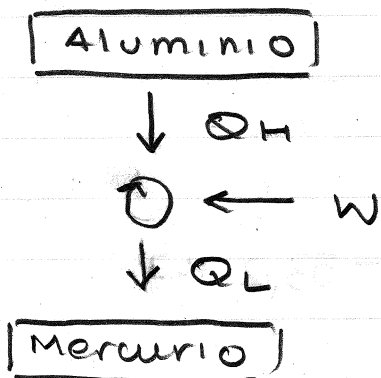 Aluminio
QH
W
QL
Mercurio